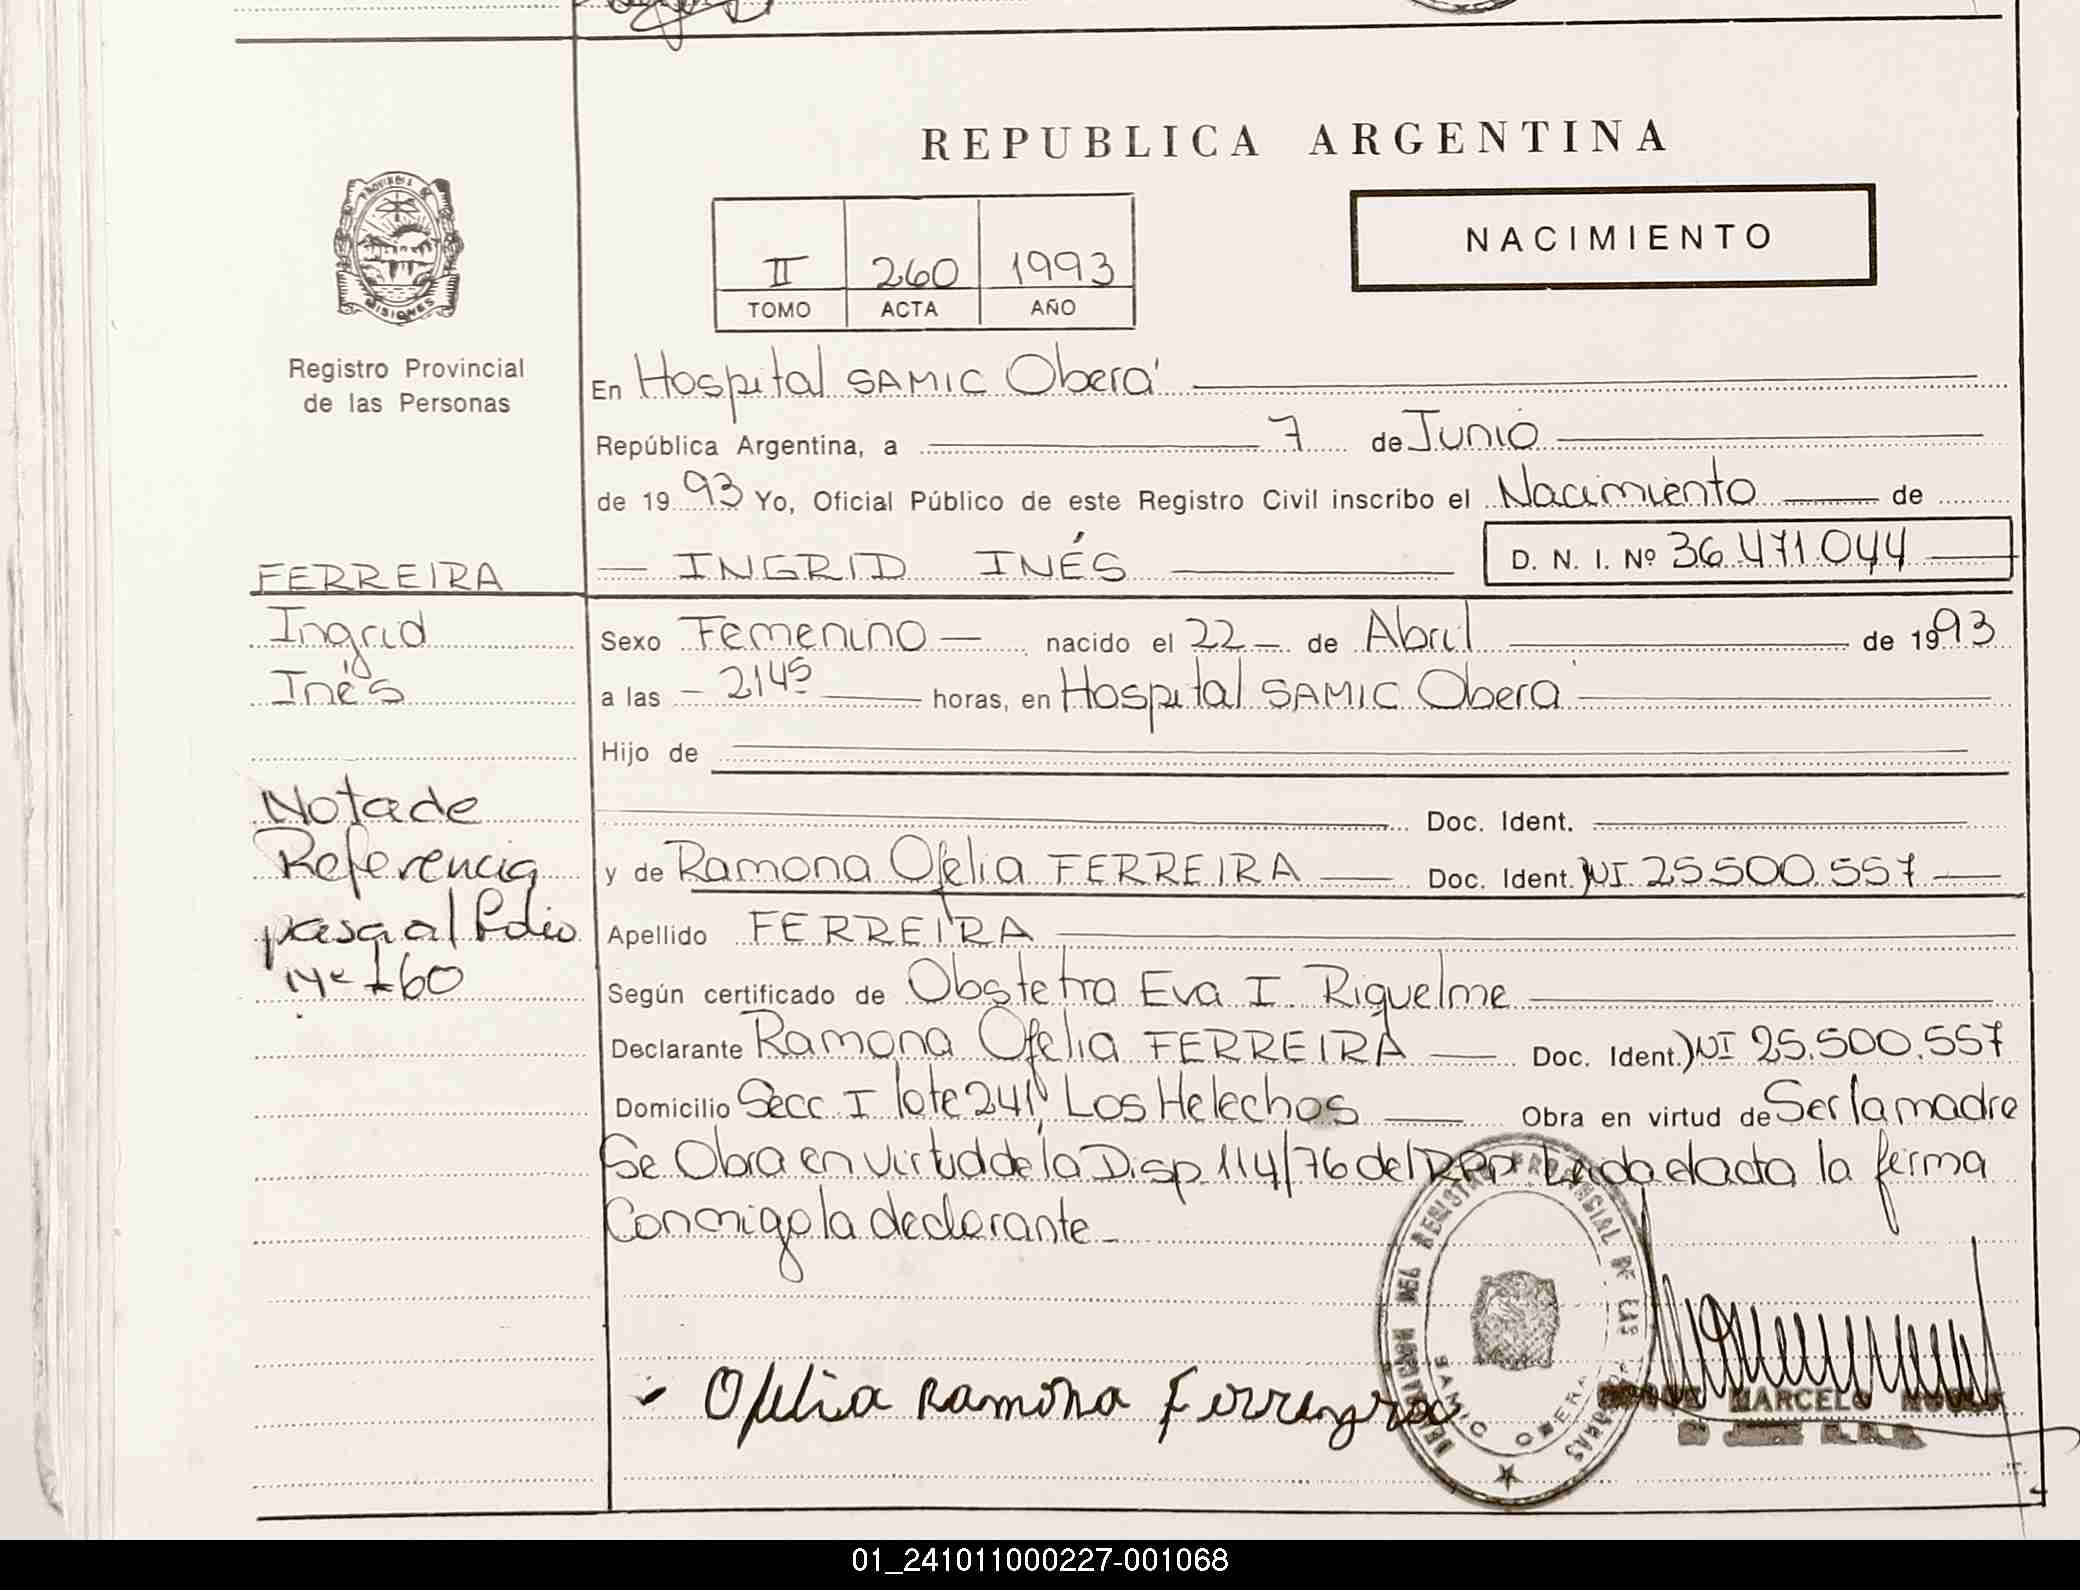 REPUBLICA ARGENTINA
PROVINCIA DE
MISIONES
NACIMIENTO
II 260 1993
TOMO ACTA AÑO
Registro Provincial
de las Personas
En Hospital SAMIC Oberá
República Argentina, a 7 de Junio
de 1993 Yo, Oficial Público de este Registro Civil inscribo el Nacimiento de
INGRID INÉS D. N. I. Nº 36.471.044
FERREIRA
Ingrid
Inés
Sexo Femenino nacido el 22 de Abril de 1993
a las 2145 horas, en Hospital SAMIC Oberá
Hijo de
Doc. Ident.
y de Ramona Ofelia FERREIRA Doc. Ident. DNI 25.500.557
Nota de
Referencia
pasa al Folio
Nº 160
Apellido FERREIRA
Según certificado de Obstetra Eva I. Riquelme
Declarante Ramona Ofelia FERREIRA Doc. Ident. DNI 25.500.557
Domicilio Secc I lote 241 Los Helechos Obra en virtud de Ser la madre
Se Obra en virtud de la Disp. 114/76 del RPP Leida el acta la firma
Conmigo la declarante
DELEGACION DEL REGISTRO PROVINCIAL DE LAS PERSONAS
SAMIC OBERA
Ofelia Ramona Ferreyra
MARCELO
01_241011000227-001068